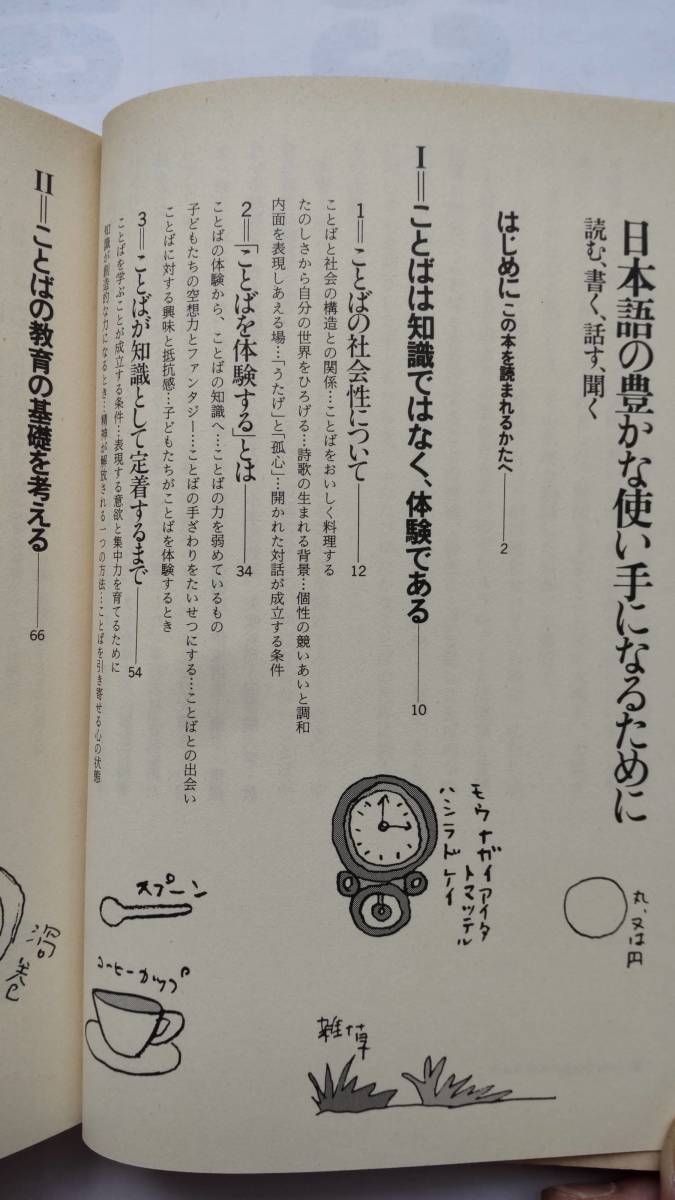 日本語の豊かな使い手になるために
読む、書く、話す、聞く
はじめに この本を読まれるかたへ——2
I=ことばは知識ではなく、体験である——10
1=ことばの社会性について——12
ことばと社会の構造との関係…ことばをおいしく料理する
たのしさから自分の世界をひろげる…詩歌の生まれる背景…個性の競いあいと調和
内面を表現しあえる場…「うたげ」と「孤心」…開かれた対話が成立する条件
2=「ことばを体験する」とは——34
ことばの体験から、ことばの知識へ…ことばの力を弱めているもの
子どもたちの空想力とファンタジー…ことばの手ざわりをたいせつにする…ことばとの出会い
ことばに対する興味と抵抗感…子どもたちがことばを体験するとき
3=ことばが知識として定着するまで——54
ことばを学ぶことが成立する条件…表現する意欲と集中力を育てるために
知識が創造的な力になるとき…精神が解放される一つの方法…ことばを引き寄せる心の状態
II=ことばの教育の基礎を考える——66
丸、又は円
モウナガイアイダ
トマッテル
ハシラドケイ
雑草
スプーン
コーヒーカップ
渦巻